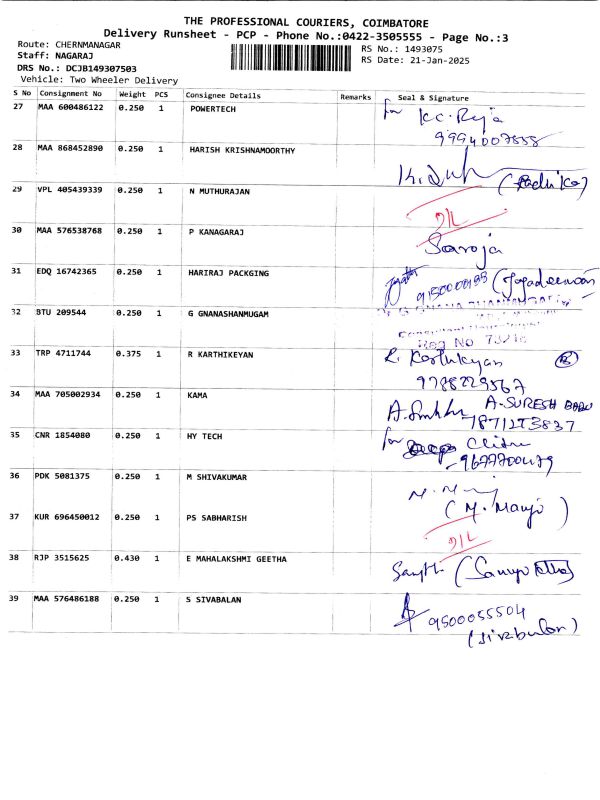 THE PROFESSIONAL COURIERS, COIMBATORE
Delivery Runsheet - PCP - Phone No.:0422-3505555 - Page No.:3
Route: CHERNMANAGAR
RS No.: 1493075
Staff: NAGARAJ
RS Date: 21-Jan-2025
DRS No.: DCJB149307503
Vehicle: Two Wheeler Delivery
S No Consignment No Weight PCS Consignee Details Remarks Seal & Signature
27 MAA 600486122 0.250 1 POWERTECH for K.C. Raja
28 MAA 868452890 0.250 1 HARISH KRISHNAMOORTHY
29 VPL 405439339 0.250 1 N MUTHURAJAN D/L
30 MAA 576538768 0.250 1 P KANAGARAJ Saroja
31 EDQ 16742365 0.250 1 HARIRAJ PACKGING
32 BTU 209544 0.250 1 G GNANASHANMUGAM
Reg No
33 TRP 4711744 0.375 1 R KARTHIKEYAN
9788229567
34 MAA 705002934 0.250 1 KAMA A.SURESH BABU
7871273837
35 CNR 1854080 0.250 1 HY TECH for
36 PDK 5081375 0.250 1 M SHIVAKUMAR
37 KUR 696450012 0.250 1 PS SABHARISH D/L
38 RJP 3515625 0.430 1 E MAHALAKSHMI GEETHA
39 MAA 576486188 0.250 1 S SIVABALAN 9500055504